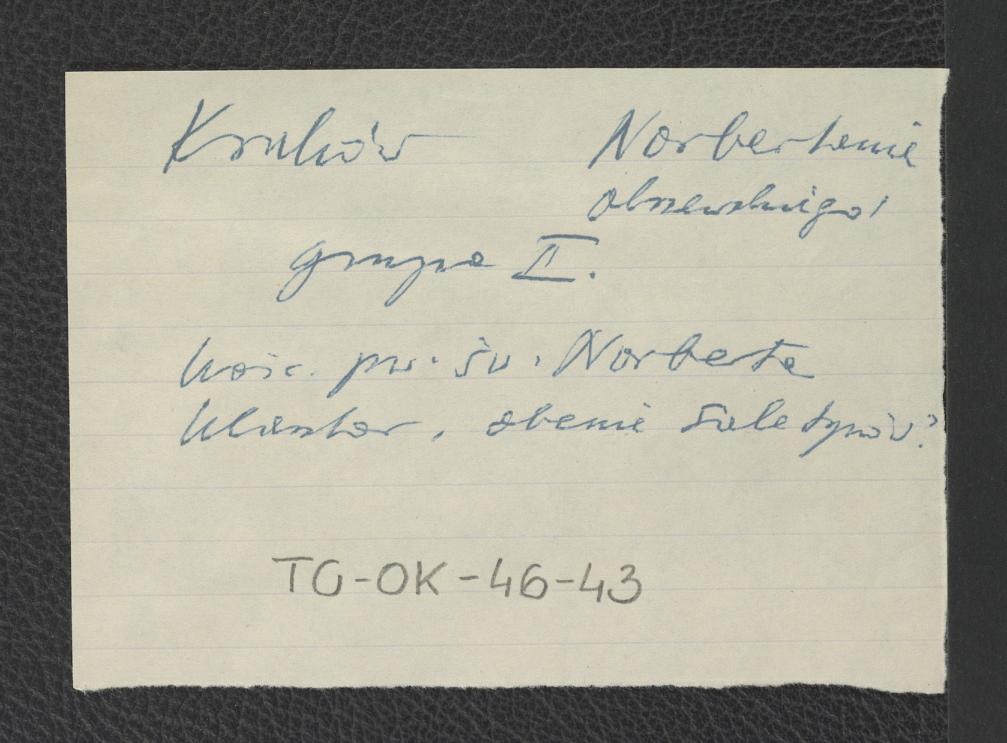 Kraków Norbertanie
grupa II.
kość. pw. św. Norberta
klasztor, obecnie saletynów?
TG-OK-46-43